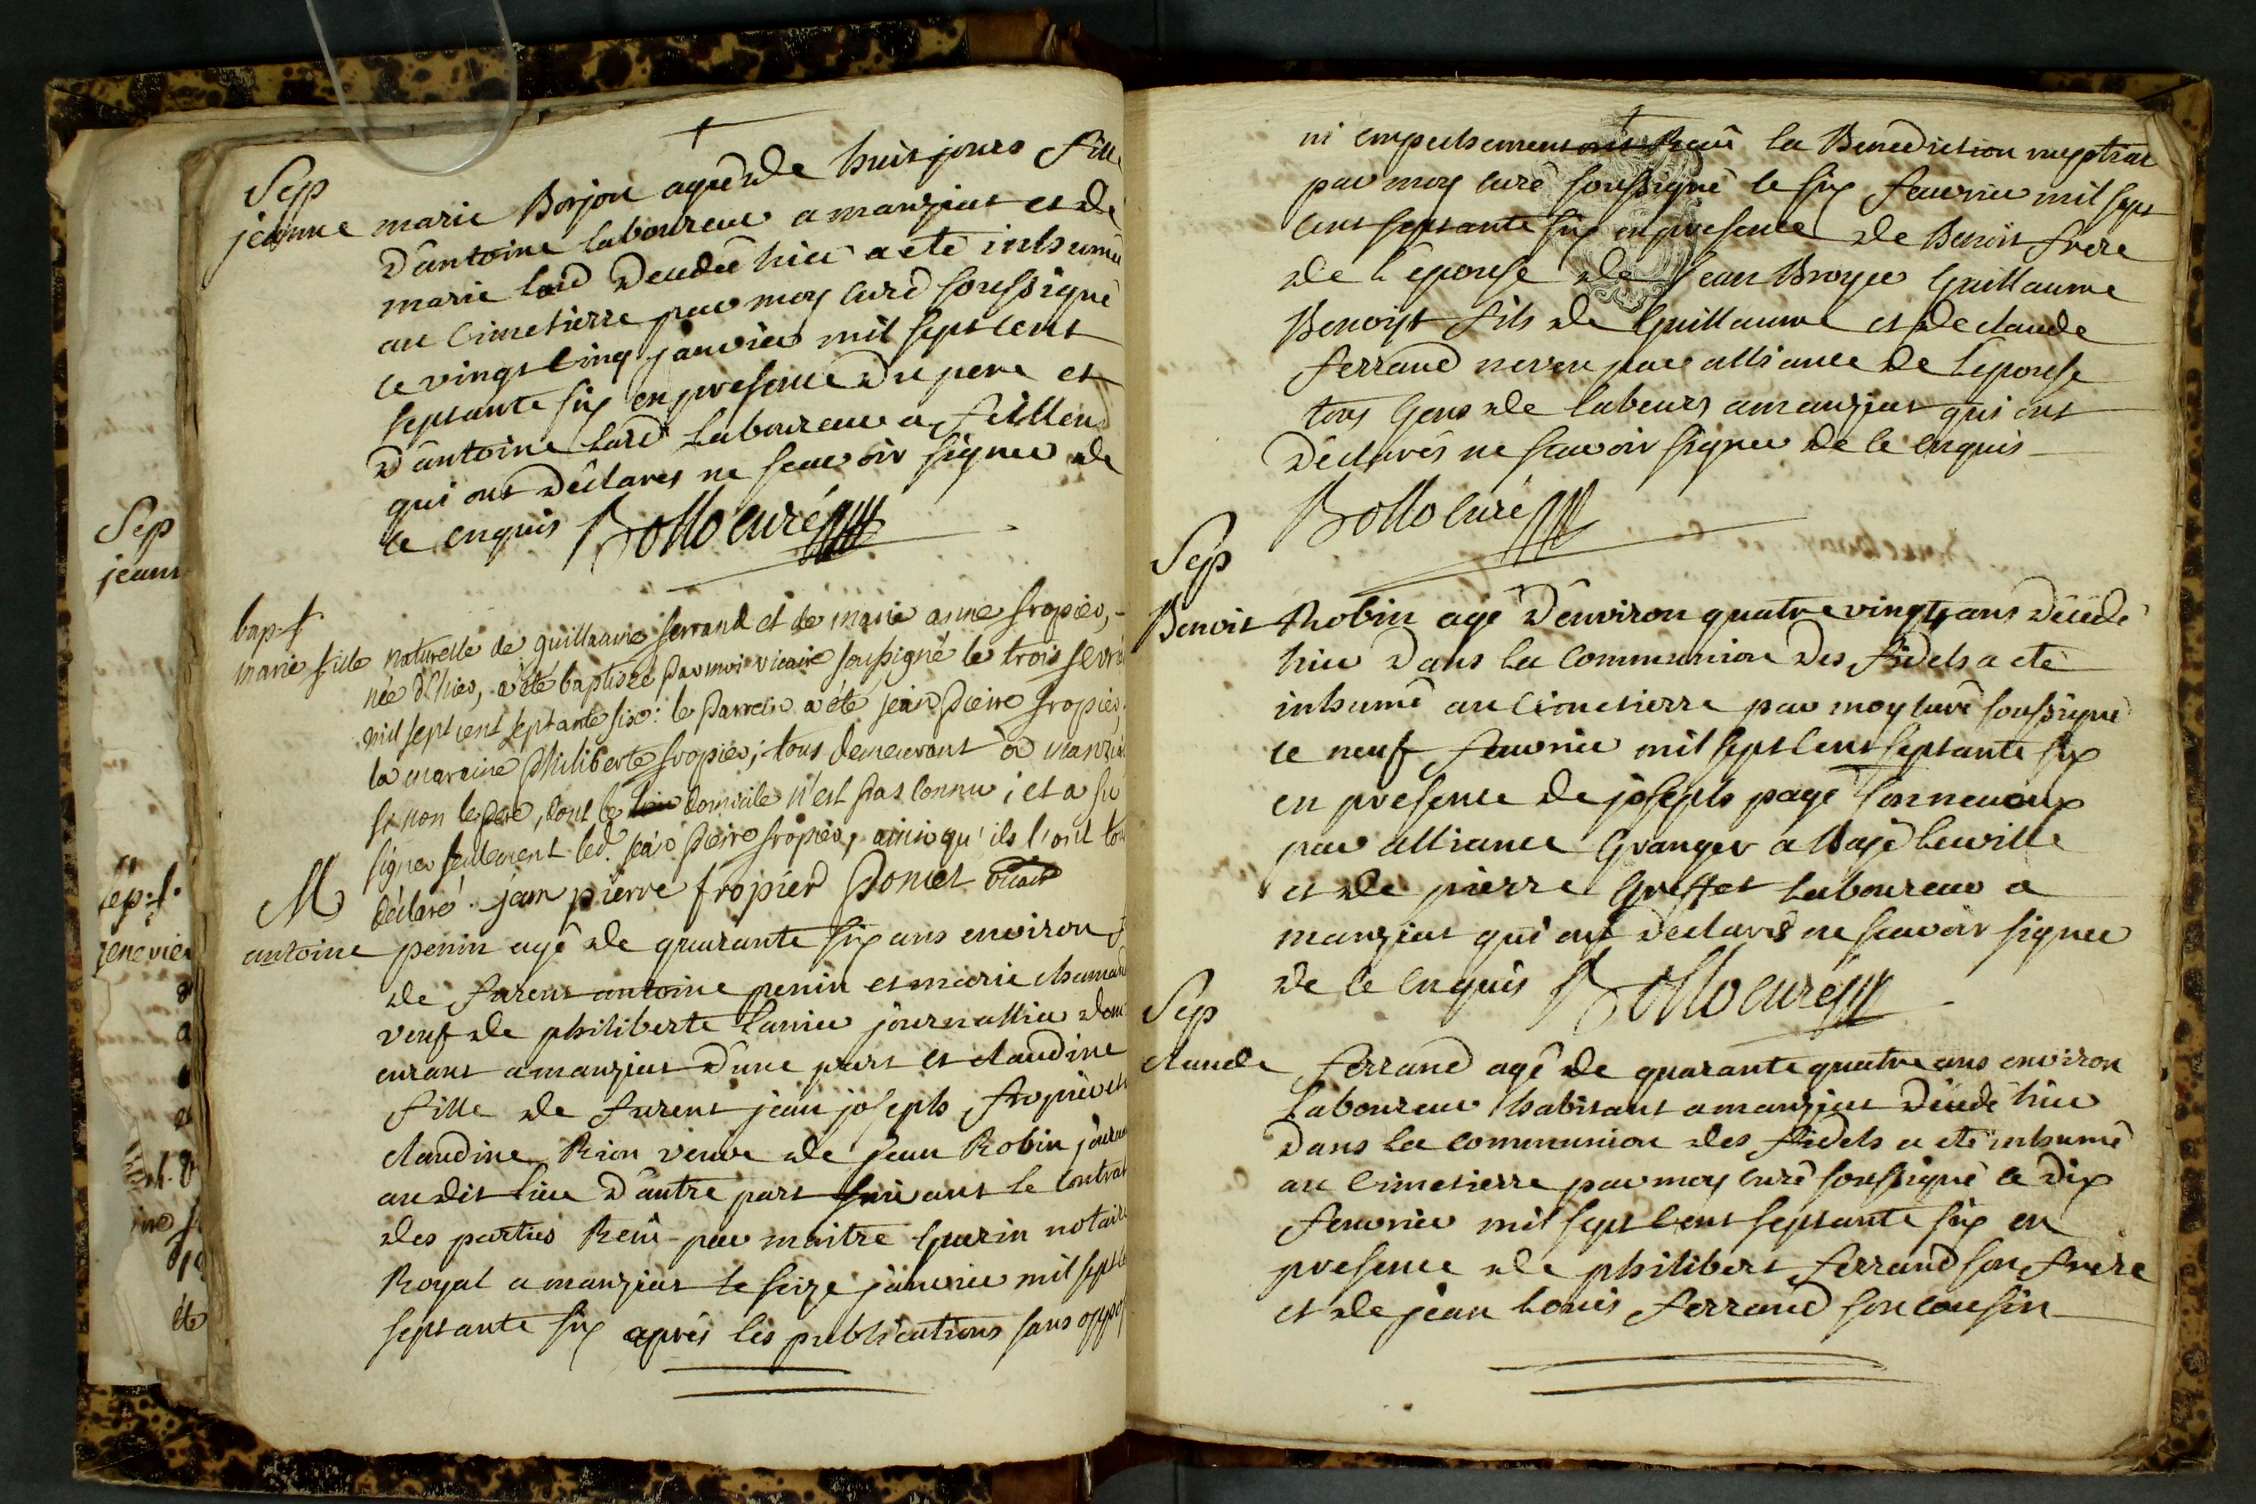 Sep
jeanne marie Borjon agée de huit jours fille
d'antoine laboureur a manziat et de
marie lard decedée hier a eté inhumé
au Cimetierre par moy curé soussigné
le vingt cinq janvier mil sept cent
septante six en presence du pere et
d'antoine lard laboureur a feillen
qui ont déclarés ne scavoir signer de
ce enquis Bollo curé
bapt
marie fille naturelle de guillaume ferrand et de marie anne fropier,
née d'hier, a été baptisée par moi vicaire soussigné le trois fevri
mil sept cent septante six: le parrein a été jean pierre fropier
la maraine philiberte fropier; tous demeurant à manziat
sinon le pere, dont le domicile n'est pas connu; et a su
signer seulement led. jean pierre fropier, ainsi qu'ils l'ont tou
déclaré. jean pierre fropier Poncet vicaire
M
antoine penin agé de quarante six ans environ f
de furent antoine penin et marie chamard
veuf de philiberte Lanier journallier dem
eurant a manziat d'une part et claudine
fille de furent jean joseph fropier et
claudine Rion veuve de jean Robin journ
au dit lieu d'autre part suivant le Contrat
des parties Reçû par maitre Guerin notaire
Royal a manziat le seize janvier mil sept ce
septante six après les publications sans oppos
ni empechement ont Reçû la Benediction nuptial
par moy curé soussigné le six fevrier mil sept
cent septante six en presence de Benoit frere
de l'epouse de jean Broyer Guillaume
Benoist fils de Guillaume et de claude
ferrand neveu par alliance de l'epouse
tous Gens de labeurs a manziat qui ont
déclarés ne scavoir signer de ce enquis
Bollo curé
Sep
Benoit Robin agé d'environ quatre vingts ans décédé
hier dans la communion des fidels a eté
inhumé au cimetierre par moy curé soussigné
le neuf fevrier mil sept cent septante six
en presence de joseph pagé son neuveux
par alliance Granger a Bagé la ville
et de pierre Greffet laboureur a
manziat qui ont declarés ne scavoir signer
de ce enquis Bollo curé
Sep
claude ferrand agé de quarante quatre ans environ
laboureur habitant a manziat décédé hier
dans la communion des fidels a eté inhumé
au cimetierre par moy curé soussigné le dix
fevrier mil sept cent septante six en
presence de philibert ferrand son frere
et de jean Louis ferrand son cousin